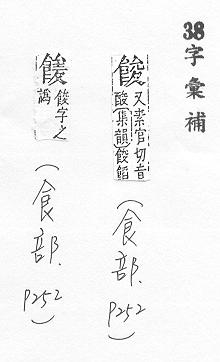 38字彙補
餕
又素官切音
酸集韻餕餡
(食部. P252)
餕字之
譌
(食部. P252)